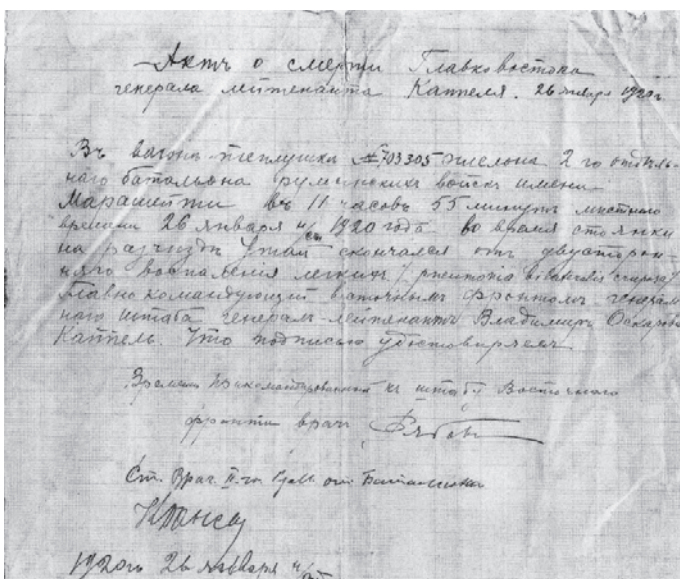 Актъ о смерти Главковостока
генерала лейтенанта Каппеля. 26 января 1920 г
Въ вагонѣ теплушкѣ №703305 эшелона 2 го отдѣль-
наго баталіона румынскихъ войскъ имени
Марашешти въ 11 часовъ 55 минутъ мѣстнаго
времени 26 января н/ст 1920 года во время стоянки
на разъѣздѣ Утай скончался отъ двусторон-
няго воспаленія легкихъ / pneumonia bilateralis cruposa/
Главнокомандующій восточнымъ фронтомъ генераль-
наго штаба генералъ-лейтенантъ Владиміръ Оскаровичъ
Каппель. Что подписью удостовѣряемъ
Времен. прикомандированный къ штабу Восточнаго
фронта врачъ
Ст. Врач II-го Рум. от. Баталіона
1920 г. 26 января н/ст